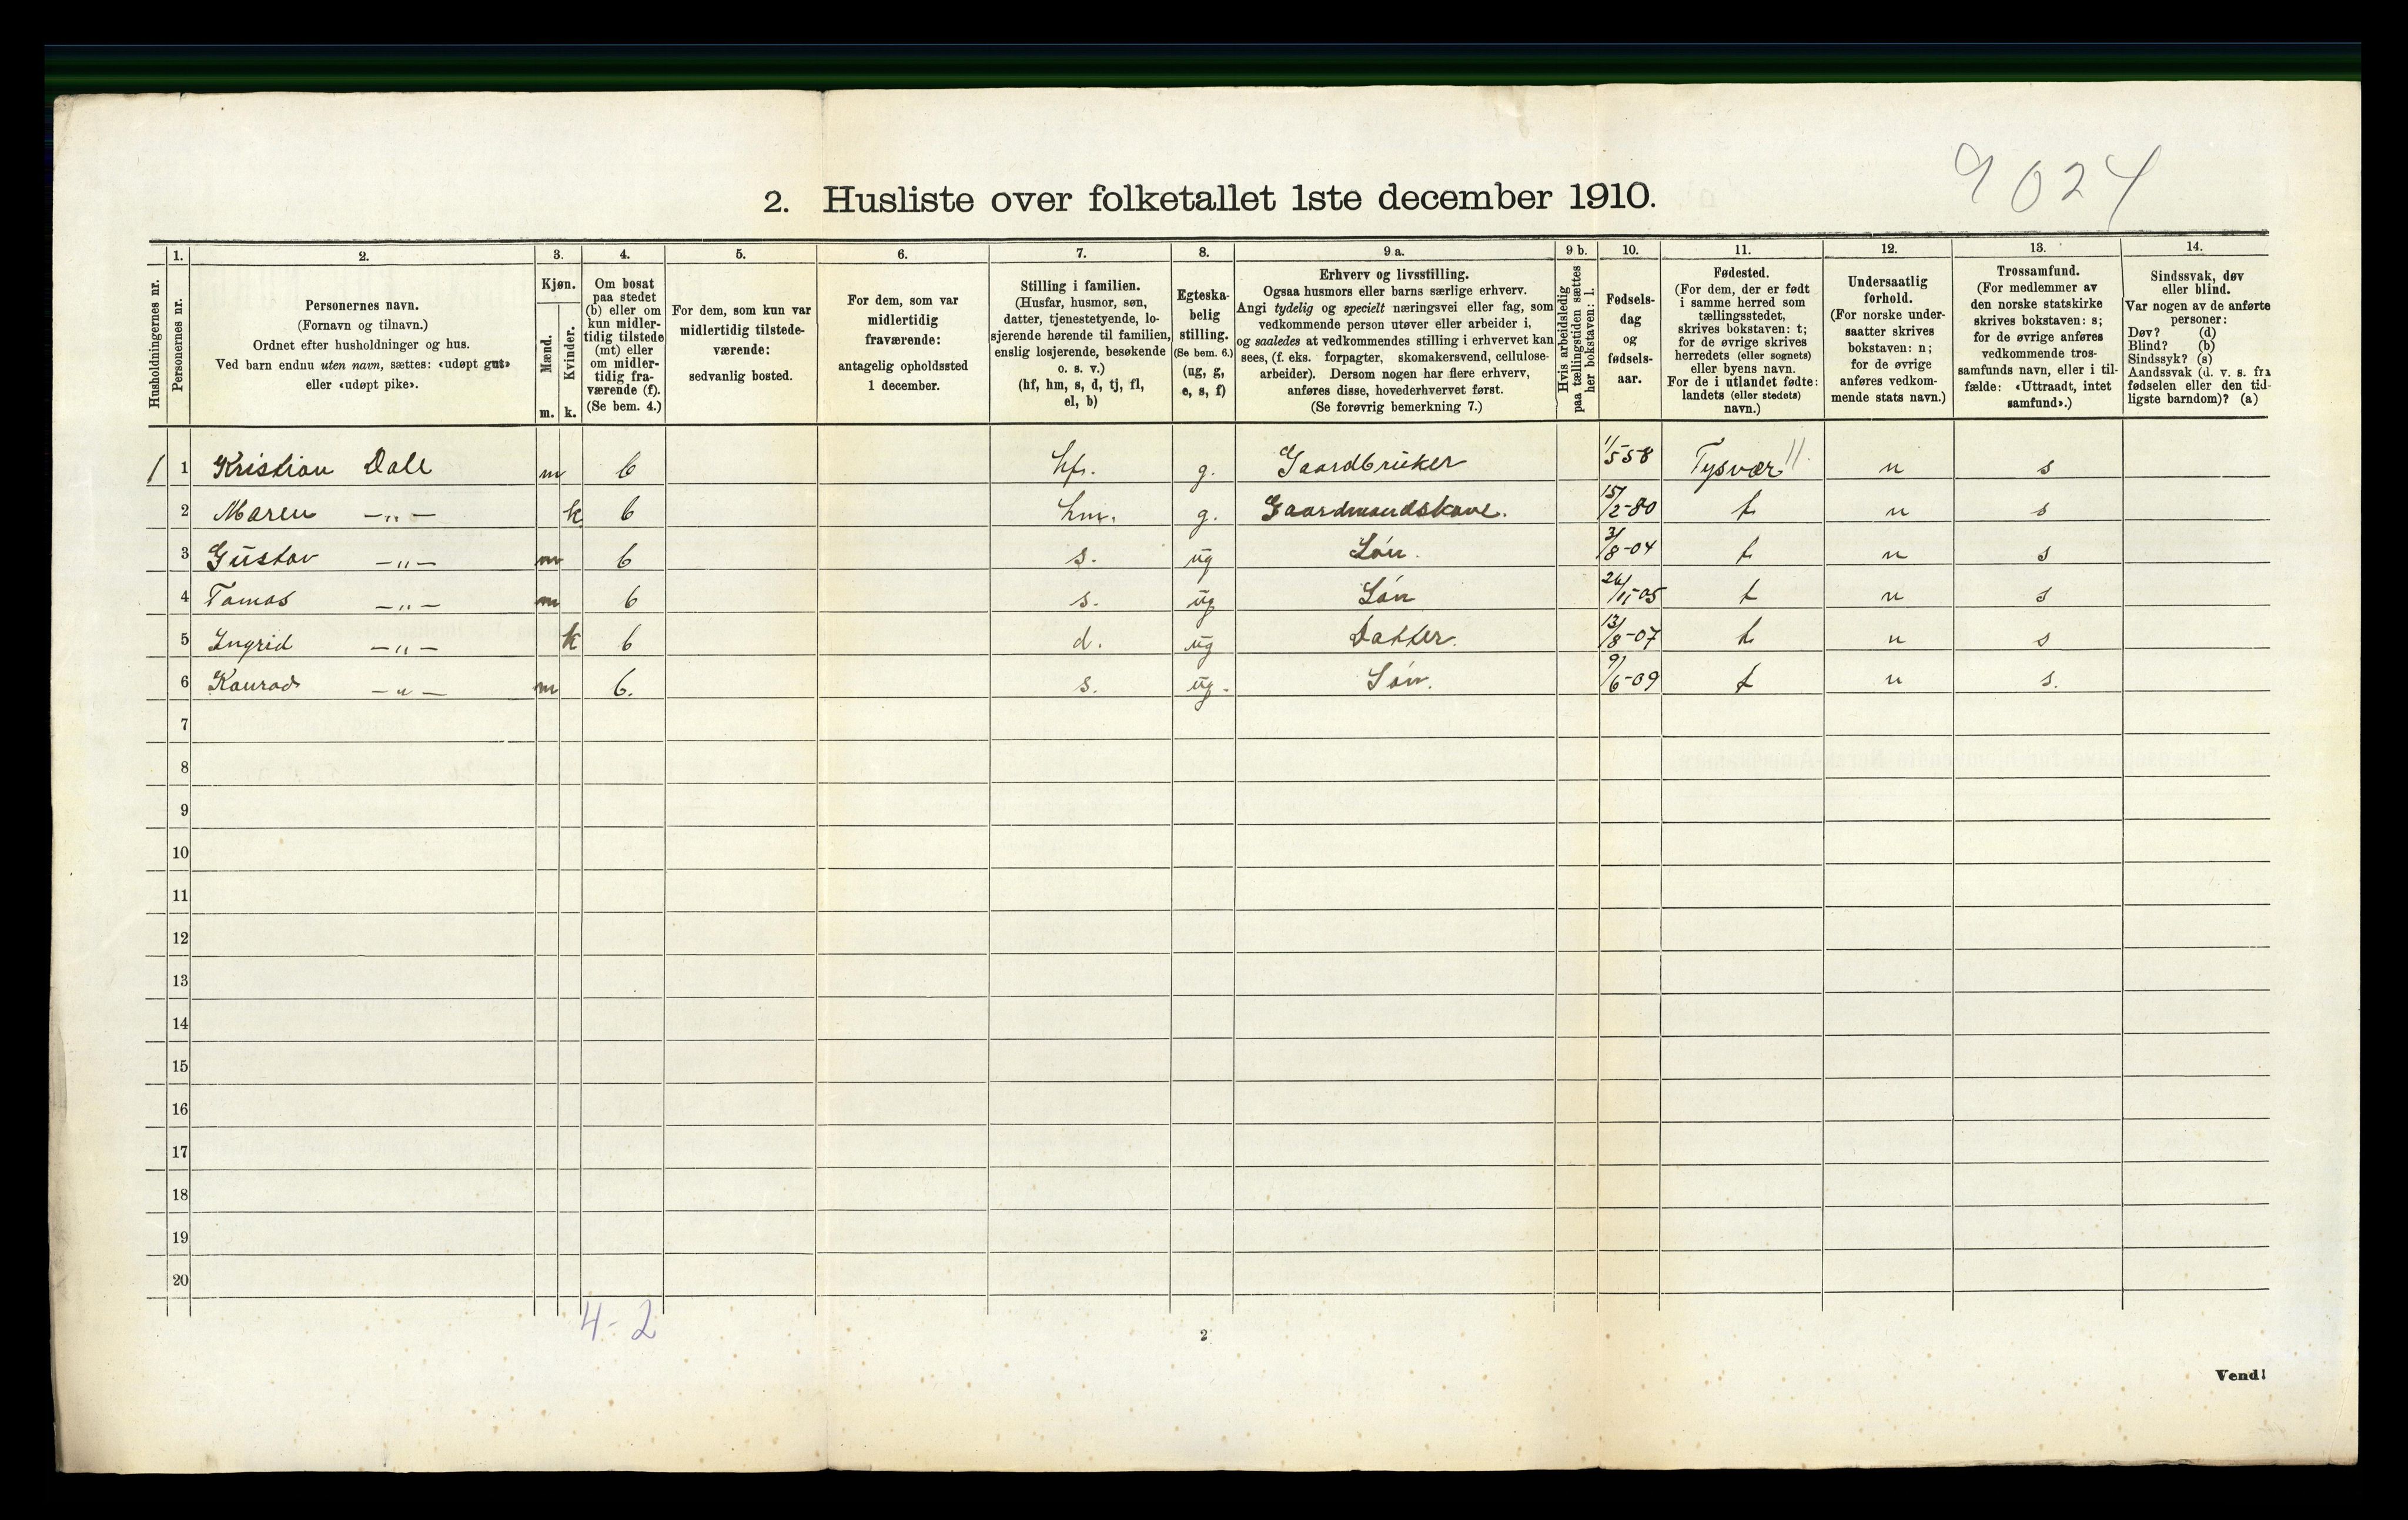 9024
2. Husliste over folketallet 1ste december 1910.
1. 2. 3. 4. 5. 6. 7. 8. 9 a. 9 b. 10. 11. 12. 13. 14.
Husholdningernes nr.
Personernes nr.
Personernes navn.
(Fornavn og tilnavn.)
Ordnet efter husholdninger og hus.
Ved barn endnu uten navn, sættes: «udøpt gut»
eller «udøpt pike».
Kjøn.
Mænd.
m.
Kvinder.
k.
Om bosat
paa stedet
(b) eller om
kun midler-
tidig tilstede
(mt) eller
om midler-
tidig fra-
værende (f).
(Se bem. 4.)
For dem, som kun var
midlertidig tilstede-
værende:
sedvanlig bosted.
For dem, som var
midlertidig
fraværende:
antagelig opholdssted
1 december.
Stilling i familien.
(Husfar, husmor, søn,
datter, tjenestetyende, lo-
sjerende hørende til familien,
enslig losjerende, besøkende
o. s. v.)
(hf, hm, s, d, tj, fl,
el, b)
Egteska-
belig
stilling.
(Se bem. 6.)
(ug, g,
e, s, f)
Erhverv og livsstilling.
Ogsaa husmors eller barns særlige erhverv.
Angi tydelig og specielt næringsvei eller fag, som
vedkommende person utøver eller arbeider i,
og saaledes at vedkommendes stilling i erhvervet kan
sees, (f. eks. forpagter, skomakersvend, cellulose-
arbeider). Dersom nogen har flere erhverv,
anføres disse, hovederhvervet først.
(Se forøvrig bemerkning 7.)
Hvis arbeidsledig
paa tællingstiden sættes
her bokstaven: l.
Fødsels-
dag
og
fødsels-
aar.
Fødested.
(For dem, der er født
i samme herred som
tællingsstedet,
skrives bokstaven: t;
for de øvrige skrives
herredets (eller sognets)
eller byens navn.
For de i utlandet fødte:
landets (eller stedets)
navn.)
Undersaatlig
forhold.
(For norske under-
saatter skrives
bokstaven: n;
for de øvrige
anføres vedkom-
mende stats navn.)
Trossamfund.
(For medlemmer av
den norske statskirke
skrives bokstaven: s;
for de øvrige anføres
vedkommende tros-
samfunds navn, eller i til-
fælde: «Uttraadt, intet
samfund».)
Sindssvak, døv
eller blind.
Var nogen av de anførte
personer:
Døv? (d)
Blind? (b)
Sindssyk? (s)
Aandssvak (d. v. s. fra
fødselen eller den tid-
ligste barndom)? (a)
1 1 Kristian Dale m b hf. g. Gaardbruker 1/5 58 Tysvær 11. n s
2 Maren -„- k b hm. g. Gaardmandskone. 15/2-80 t n s
3 Gustav -„- m b s. ug Søn. 3/8-04 t n s
4 Tomas -„- m b s. ug Søn 26/11-05 t n s
5 Ingrid -„- k b d. ug Datter. 13/8-07 t n s
6 Konrad -„- m b. s. ug. Søn. 9/6-09 t n s.
7
8
9
10
11
12
13
14
15
16
17
18
19
20
4-2
2
Vend!